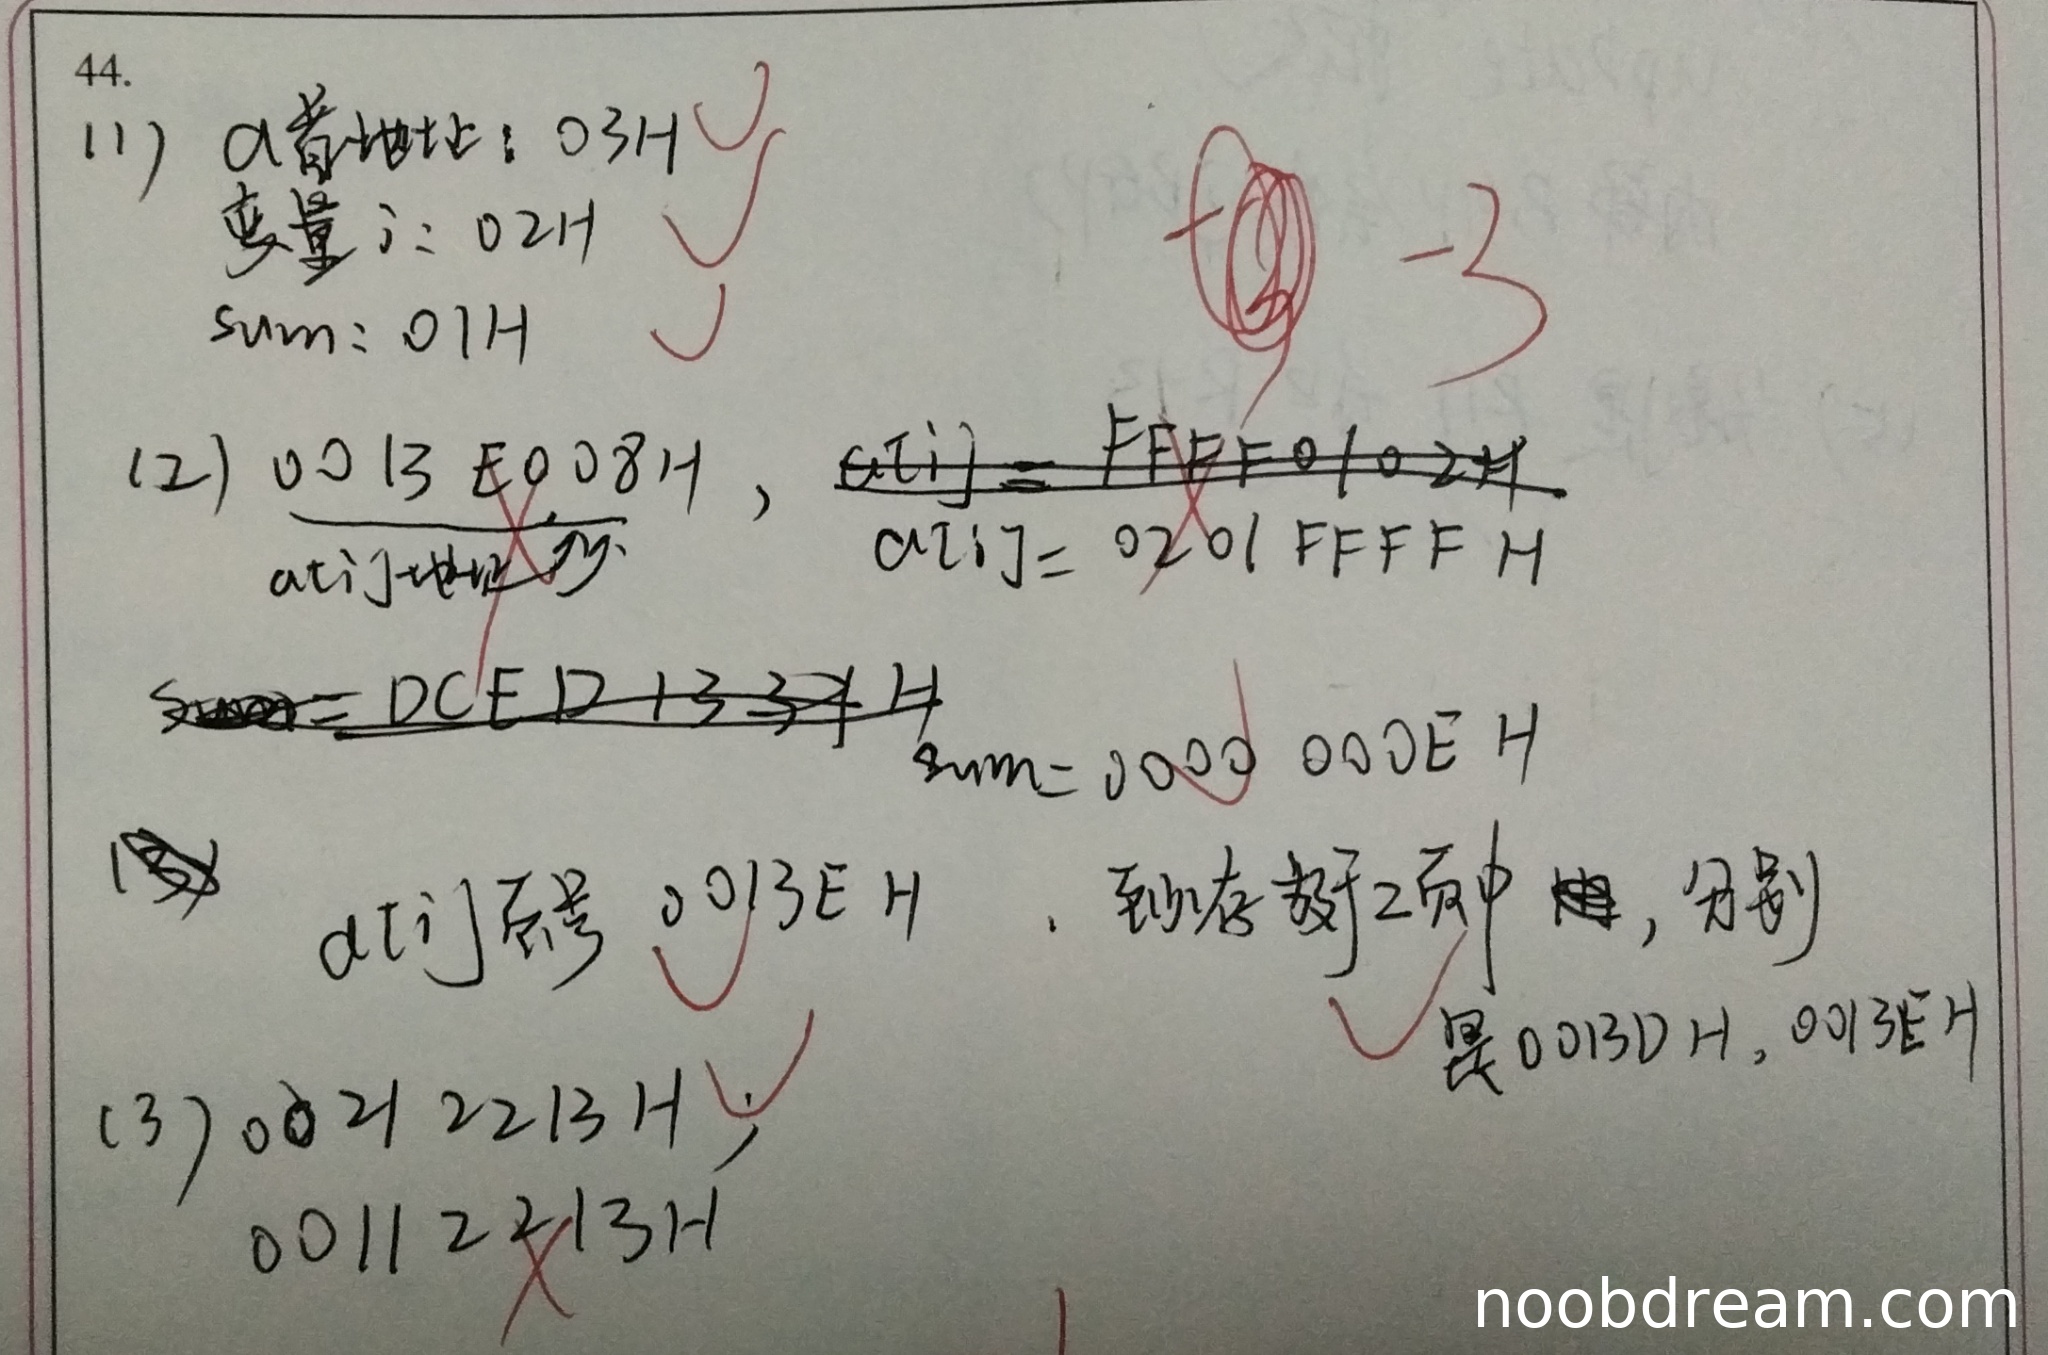 44.
(1) a首地址: 03H
变量i: 02H
sum: 01H
-3
(2) 0013 E008H, a[i] = FFFF0102H
a[i]地址 a[i] = 0201 FFFF H
sum = DCED 1334 H
sum = 0000 000E H
a[i]页号 0013E H . 到现存放于2页中, 分别
是0013D H, 0013E H
(3) 0021 2213H ;
0011 2213H
noobdream.com